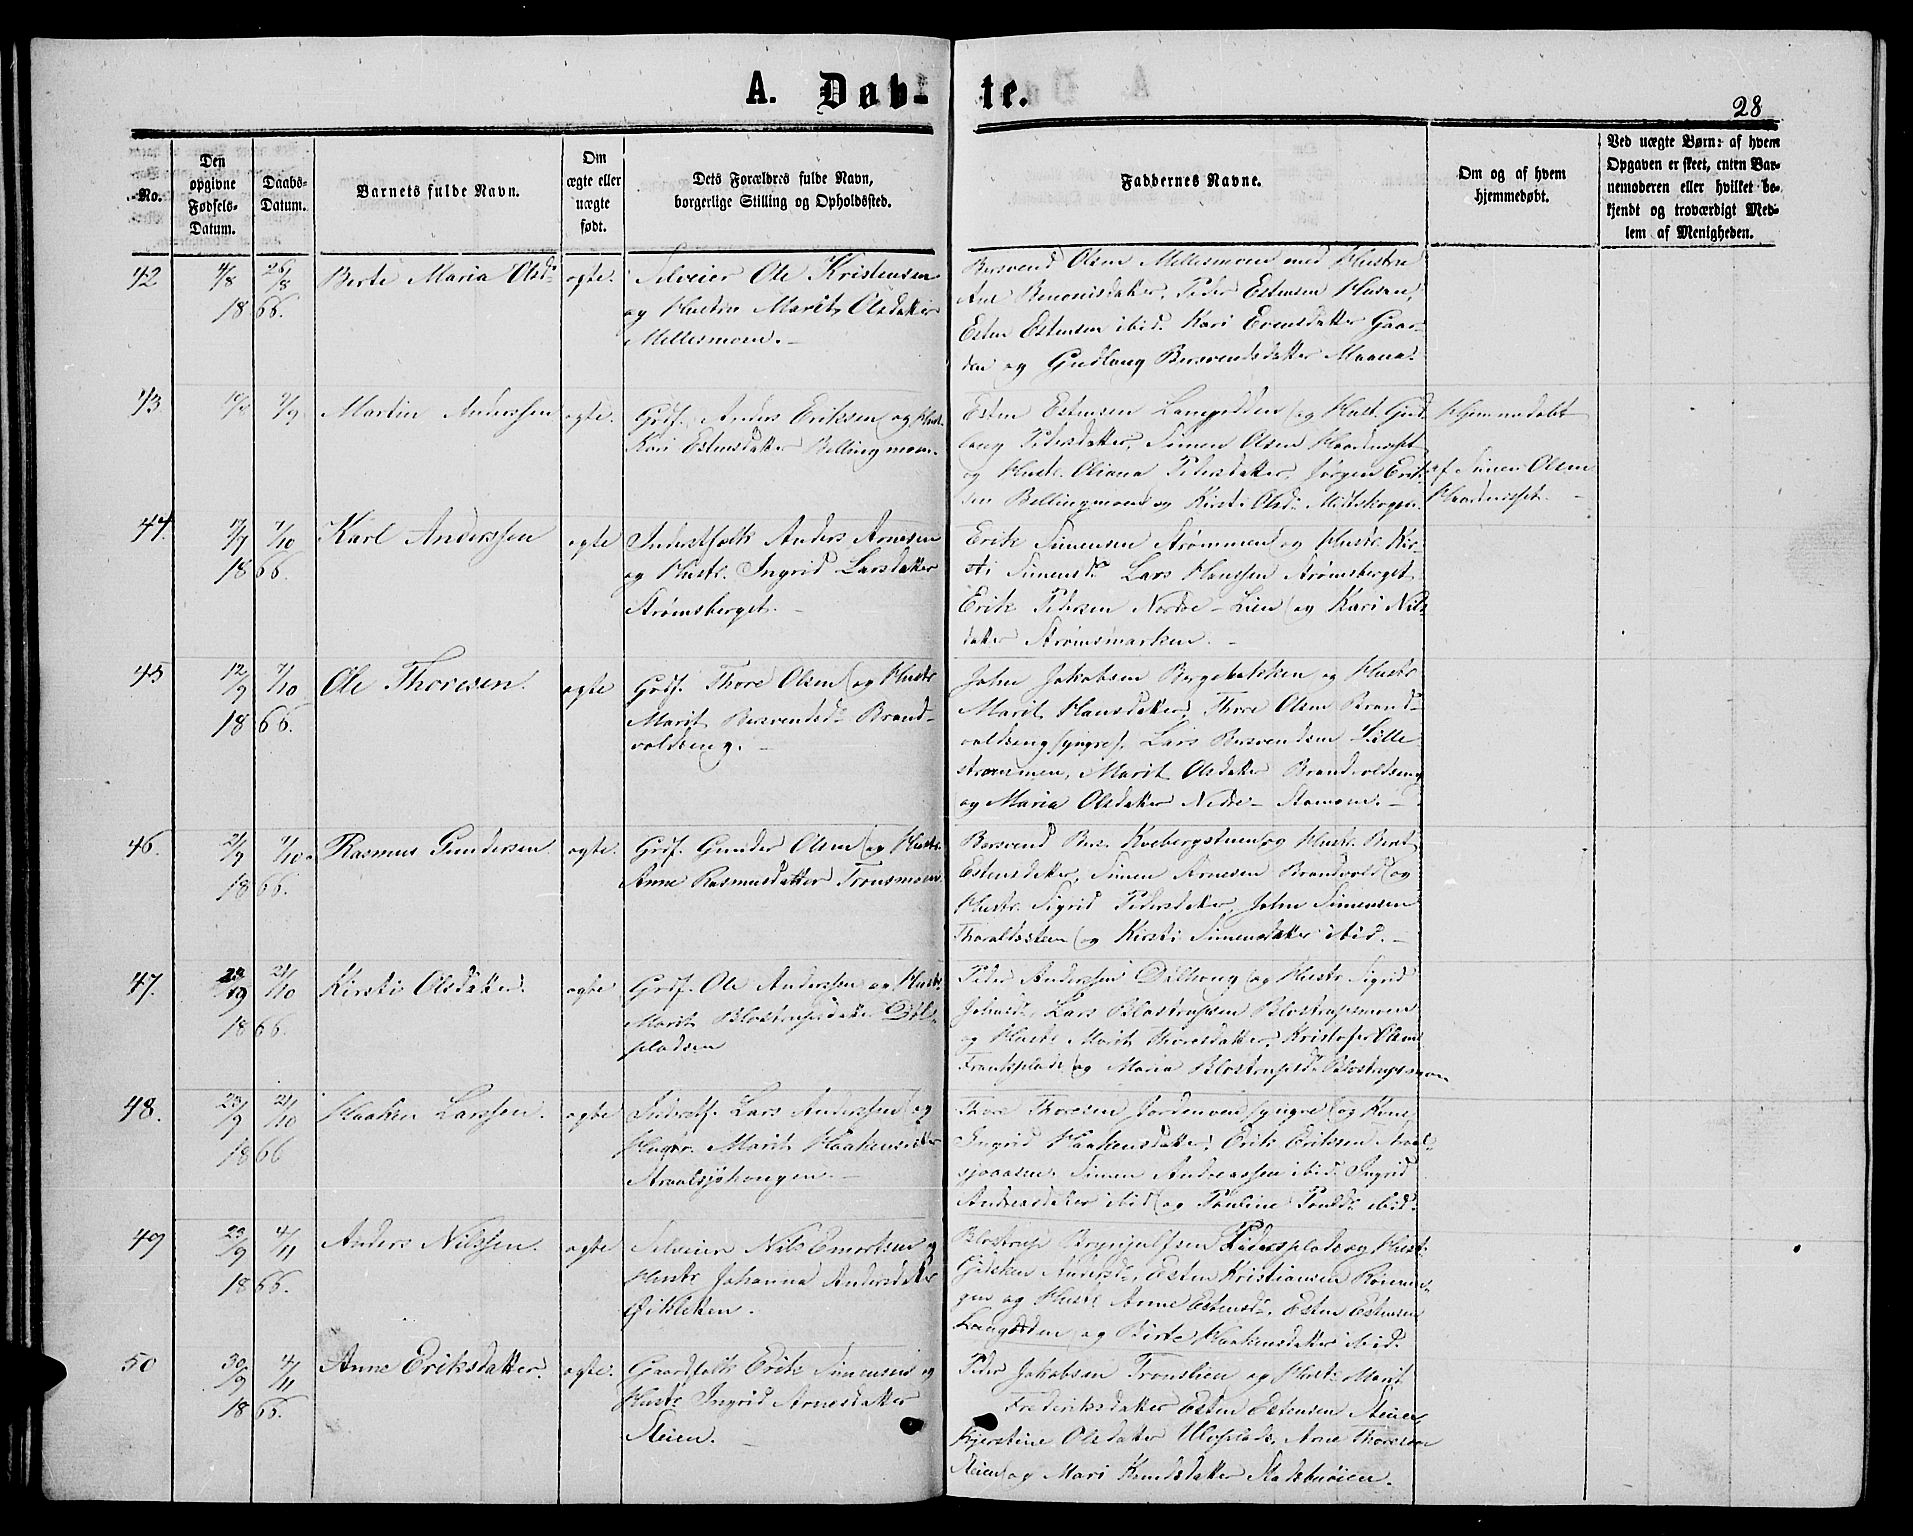 A. Døb-
te.
28
No.
Den
opgivne
Fødsels-
Datum.
Daabs-
Datum.
Barnets fulde Navn.
Om
ægte eller
uægte
født.
Dets Forældres fulde Navn,
borgerlige Stilling og Opholdssted.
Faddernes Navne.
Om og af hvem
hjemmedøbt.
Ved uægte Børn: af hvem
Opgaven er skeet, enten Bar-
nemoderen eller hvilket be-
kjendt og troværdigt Med-
lem af Menigheden.
42
4/8
26/8
1866.
Berte Maria Olsd.
ægte.
Selveier Ole Kristensen
og Hustru Marit Olsdatter
Mellesmoen.
Bersvend Olsen Mellesmoen med Hustru
Ane Benonisdatter, Peder Estensen Husan,
Esten Estensen ibid. Kari Evensdatter Gaar-
den og Gudlaug Bersvendsdatter Maana.
43
10/8
9/9
Martin Anderssen
ægte.
Grdf. Anders Eriksen og Hust.
Kari Estensdatter Bellingmoen.
Esten Estensen Langodden og Hust. Gud-
laug Pedersdatter, Simen Olsen Haardnesset
og Hust. Oliana Pedersdatter, Jørgen Erik-
sen Bellingmoen og Kirsti Olsd. Midtskogen.
Hjemmedøbt
af Simen Olsen
Haardnesset.
44.
17/7
7/10
1866.
Karl Anderssen
ægte
Inderstfolk Anders Arnesen
og Hustr. Ingrid Larsdatter
Strømsberget.
Erik Simensen Strømmen og Hustr. Kir-
sti Simensd. Lars Hanssen Strømsberget
Erik Pedersen Nordre-Lien og Kari Nils-
datter Strømsmarken.
45
12/9
7/10
1866.
Ole Thoresen.
ægte
Grdf. Thore Olsen og Hustr
Marit Bersvendsd. Brand-
voldseng.
John Jakobsen Bygebakken og Hustr
Marit Hansdatter, Thore Olsen Brand-
voldseng (yngre). Lars Bersvendsen Lille
strømmen, Marit Olsdatter Brandvoldseng
og Maria Olsdatter Nedre-Stamoen.
46.
21/9
7/10
1866.
Rasmus Gundersen.
ægte.
Grdf. Gunder Olsen og Hustr.
Anne Rasmusdatter Tronsmoen
Bersvend Bers. Kvebergstuen og Hustr. Beret
Estensdatter, Simen Arnesen Brandvold og
Hustr. Sigrid Pedersdatter, John Simensen
Thoraldssteen og Kirsti Simensdatter ibid.
47.
21/10
1866.
Kirsti Olsdatter.
ægte
Grdf. Ole Anderssen og Hustr.
Marit Blostrupsdatter
pladsen
Peder Anderssen Dalhoug og Hustr. Sigrid
Johnsd. Lars Blostrupsen Blostrupsmoen
og Hustr Marit Thoresdatter, Kristofer Olsen
og Maria Blostrupsd. Blostrupsmoen
48.
23/9
21/10
1866
Haaken Larssen.
ægte
Inderstf. Lars Anderssen og
Hustr. Marit Haakensdatter
Atnalsjøhougen.
Thore Thoresen Jordemoen (yngre) og Kone
Ingrid Haakensdatter, Erik Eriksen Atnal-
sjøaasen. Simen Andreassen ibid. Ingrid
Andreasdatter ibid og Pauline Paulsd. ibid.
49
23/9
4/11
1866.
Anders Nilssen.
ægte
Selveier Nils Emortsen og
Hustr Johanna Andersdatter
Øikleken.
Blostrup Brynjulfsen Pedersplads og Hust.
Gjesken, Esten Kristiansen
gen og Hustr Anne Estensd. Esten Estensen
Langodden og Birte Haakensdatter ibid.
50
30/9
4/11
1866.
Anne Eriksdatter.
ægte.
Gaardfolk Erik Simensen og
Hustr Ingrid Arnesdatter
Steien.
Peder Jakobsen Tronslien og Hust. Marit
Frederiksdatter Esten Estensen Steien
Kjerstine Olsdatter, Arne Thoresen
Steien og Mari Knudsdatter.